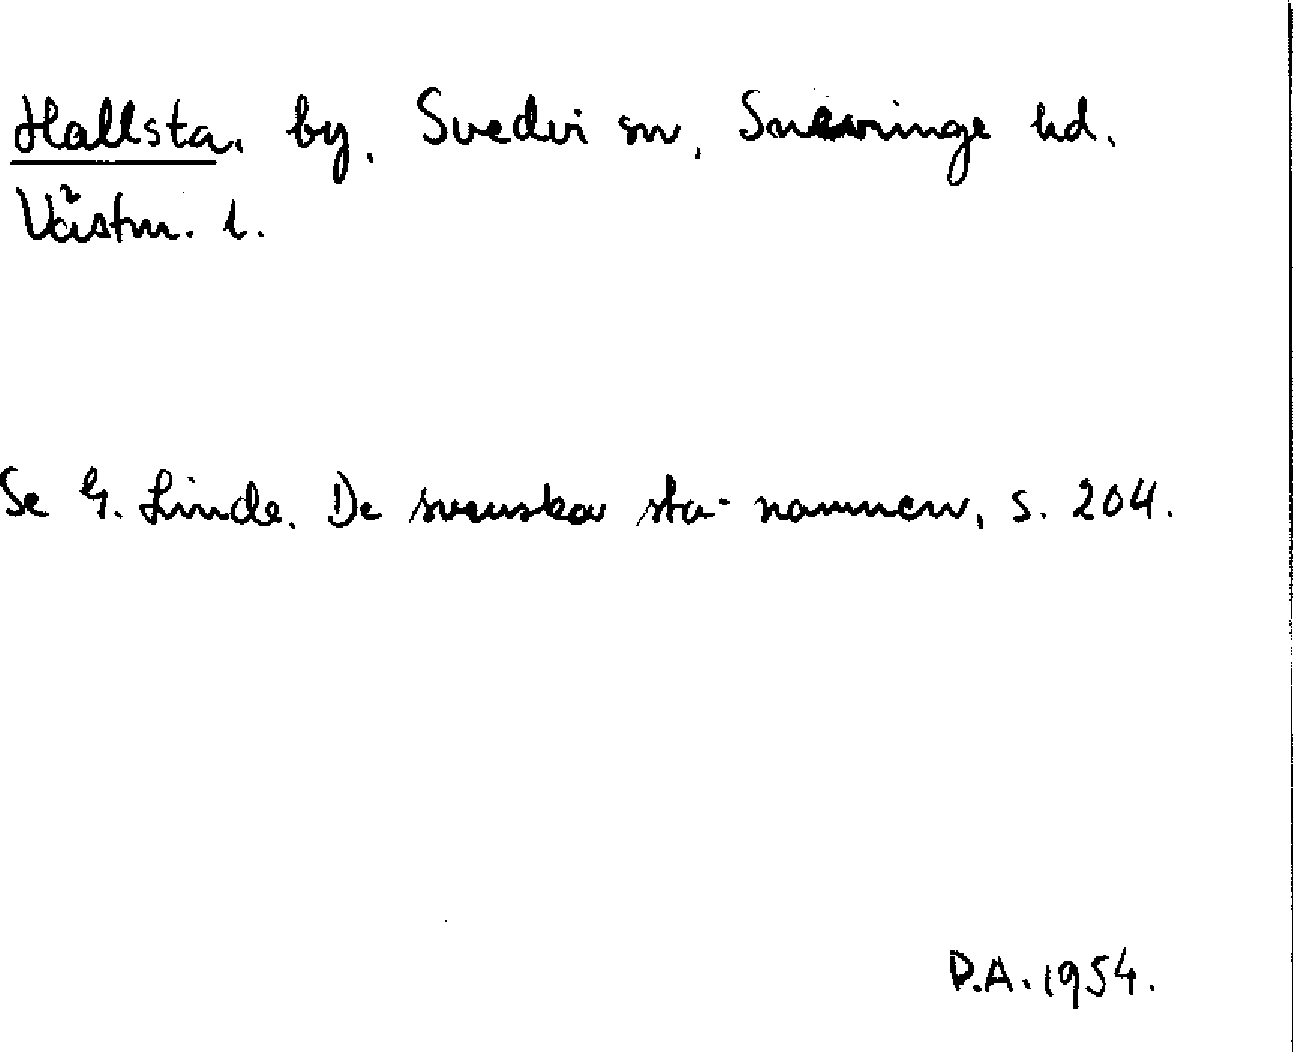 Hallsta, by, Svedvi sn, Snevringe hd.
Västm. l.
Se G. Linde, De svenska sta-namnen, s. 204.
D.A. 1954.